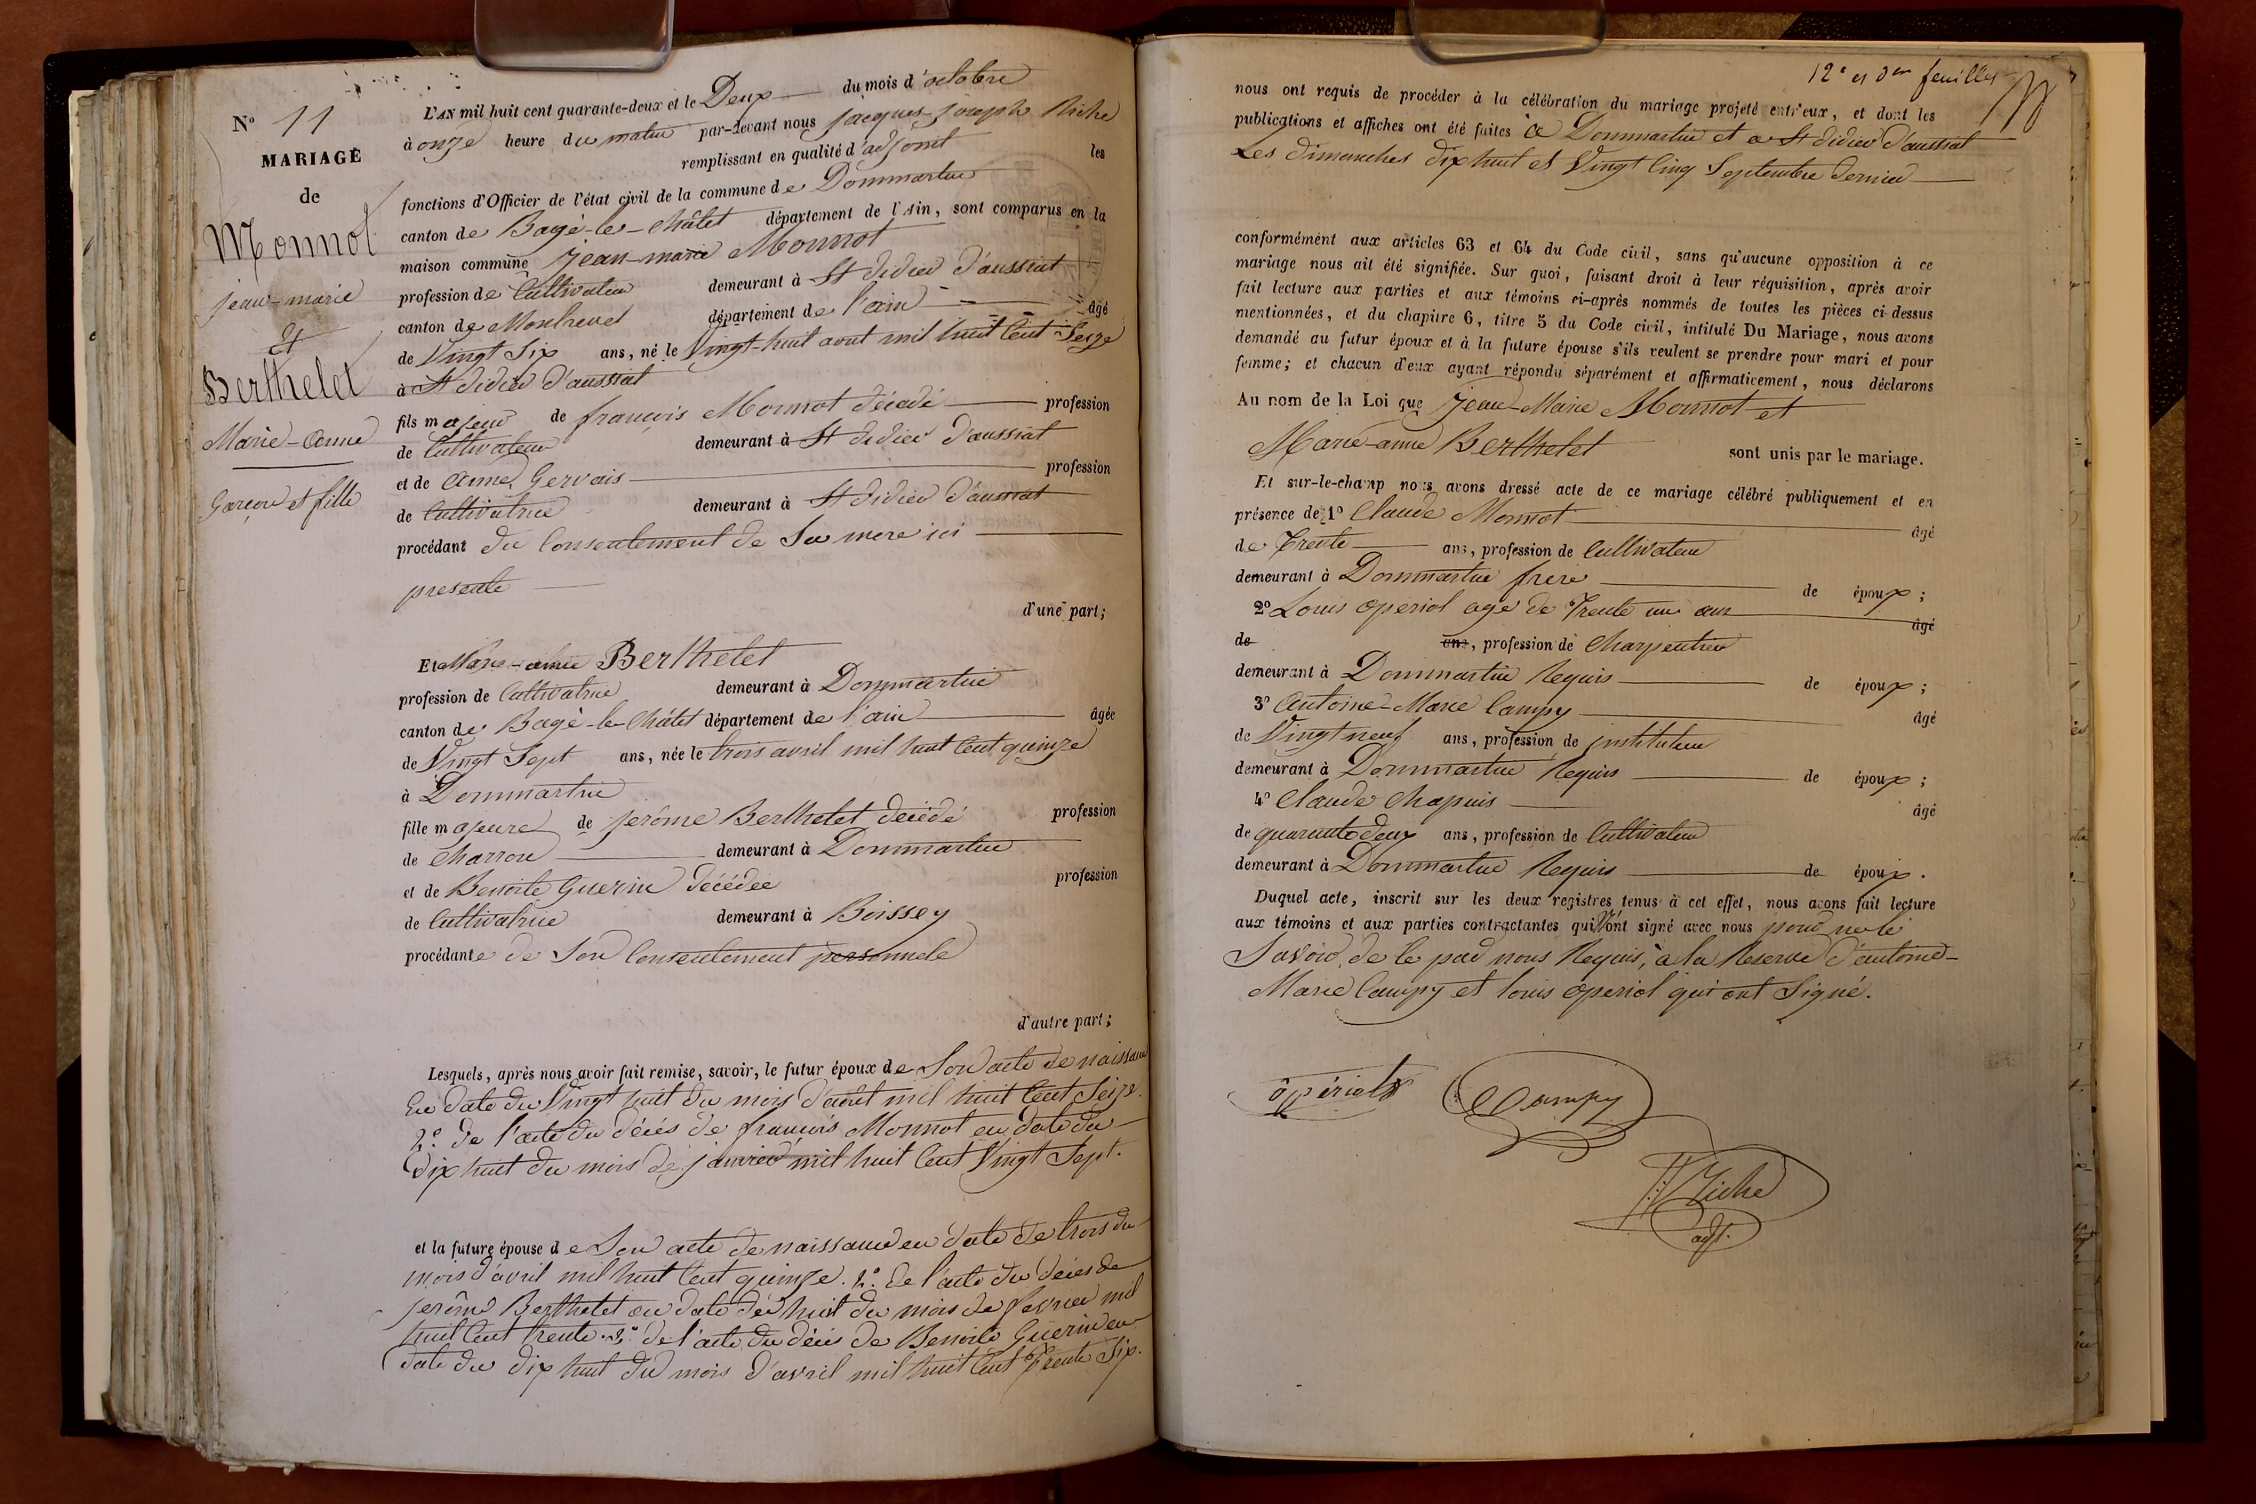 N° 11
MARIAGE
de
Monnot
jean-marie
Et
Berthelet
Marie-anne
Garçon et fille
L'AN mil huit cent quarante-deux et le Deux du mois d'octobre
à onze heure du matin par-devant nous jacques joseph Riche
remplissant en qualité d'adjoint les
fonctions d'Officier de l'état civil de la commune de Dommartin
canton de Bagé-le-Châtel département de l'Ain, sont comparus en la
maison commune jean-marie Monnot
profession de Cultivateur demeurant à St didier d'aussiat
canton de Montrevel département de l'ain âgé
de Vingt Six ans, né le Vingt-huit aout mil huit Cent Seize
à St didier d'aussiat
fils majeur de françois Monnot décédé profession
de Cultivateur demeurant à St didier d'aussiat
et de anne Gervais profession
de Cultivatrice demeurant à St didier d'aussiat
procédant du Consentement de Sa mere ici
presente
d'une part;
Et Marie-anne Berthelet
profession de Cultivatrice demeurant à Dommartin
canton de Bagé-le-Châtel département de l'ain âgée
de Vingt Sept ans, née le trois avril mil huit Cent quinze
à Dommartin
fille majeure de jerôme Berthelet décédé profession
de Charron demeurant à Dommartin
et de Benoite Guerin décédée profession
de Cultivatrice demeurant à Boissey
procédante de Son Consentement personnele
d'autre part;
Lesquels, après nous avoir fait remise, savoir, le futur époux de Son acte de naissance
En date du Vingt huit du mois d'août mil huit Cent Seize.
2°. de l'acte du décés de françois Monnot en date du
dix huit du mois de janvier mil huit Cent Vingt Sept.
et la future épouse de Son acte de naissance en date de trois du
mois d'avril mil huit Cent quinze. 2°. de l'acte du décés de
jerôme Berthelet en date du huit du mois de fevrier mil
huit Cent trente 3°. de l'acte du décés de Benoite Guerin en
date du dix huit du mois d'avril mil huit Cent Trente Six.
12e et feuillet
nous ont requis de procéder à la célébration du mariage projeté entr'eux, et dont les
publications et affiches ont été faites à Dommartin et a St didier d'aussiat
Les dimanches dix huit et Vingt Cinq Septembre dernier
conformément aux articles 63 et 64 du Code civil, sans qu'aucune opposition à ce
mariage nous ait été signifiée. Sur quoi, faisant droit à leur réquisition, après avoir
fait lecture aux parties et aux témoins ci-après nommés de toutes les pièces ci-dessus
mentionnées, et du chapitre 6, titre 5 du Code civil, intitulé Du Mariage, nous avons
demandé au futur époux et à la future épouse s'ils veulent se prendre pour mari et pour
femme; et chacun d'eux ayant répondu séparément et affirmativement, nous déclarons
Au nom de la Loi que jean-Marie Monnot et
Marie-anne Berthelet sont unis par le mariage.
Et sur-le-champ nous avons dressé acte de ce mariage célébré publiquement et en
présence de 1° Claude Monnot âgé
de Trente ans, profession de Cultivateur
demeurant à Dommartin frere de époux;
2° Louis operiol agé de Trente un ans âgé
de ans, profession de Charpentier
demeurant à Dommartin Requis de époux;
3° antoine-Marie Campy âgé
de Vingt neuf ans, profession de instituteur
demeurant à Dommartin Requis de époux;
4° Claude Chapuis âgé
de quarante deux ans, profession de Cultivateur
demeurant à Dommartin Requis de époux.
Duquel acte, inscrit sur les deux registres tenus à cet effet, nous avons fait lecture
aux témoins et aux parties contractantes qui n'ont signé avec nous pour ne le
Savoir, de le par nous Requis, à la Reserve d'antoine-
Marie Campy et louis operiol qui ont Signé.
opériol
Campy
Riche
adj.